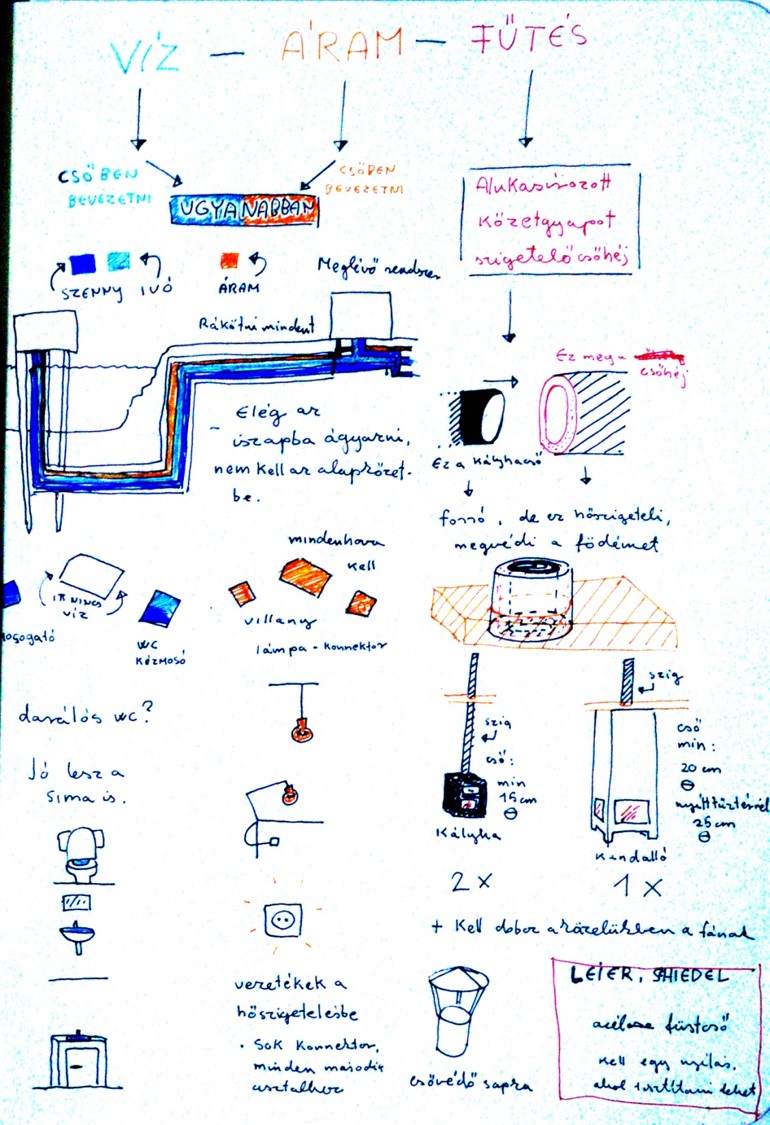 VÍZ — ÁRAM — FŰTÉS
CSŐBEN
BEVEZETNI
CSŐBEN
BEVEZETNI
UGYANABBAN
SZENNY IVÓ
ÁRAM
Meglévő rendszer
Rákötni mindent
Elég az
iszapba ágyazni,
nem kell az alapkőzet-
be.
Alukasírozott
kőzetgyapot
szigetelő csőhéj
Ez meg a
csőhéj
Ez a kályhacső
forró, de ez hőszigeteli,
megvédi a födémet
ITT NINCS
VÍZ
mosogató
WC
KÉZMOSÓ
mindenhova
kell
villany
lámpa - konnektor
darálós wc?
Jó lesz a
sima is.
vezetékek a
hőszigetelésbe
• Sok konnektor,
minden második
asztalhoz
szig
cső:
min
15 cm
⌀
Kályha
2x
szig
cső
min:
20 cm
⌀
nyílttűztérnél
25 cm
⌀
Kandalló
1x
+ Kell doboz a közelükben a fának
csővédő sapka
LEIER, SHIEDEL
füstcső
kell egy nyílás,
ahol tisztítani lehet